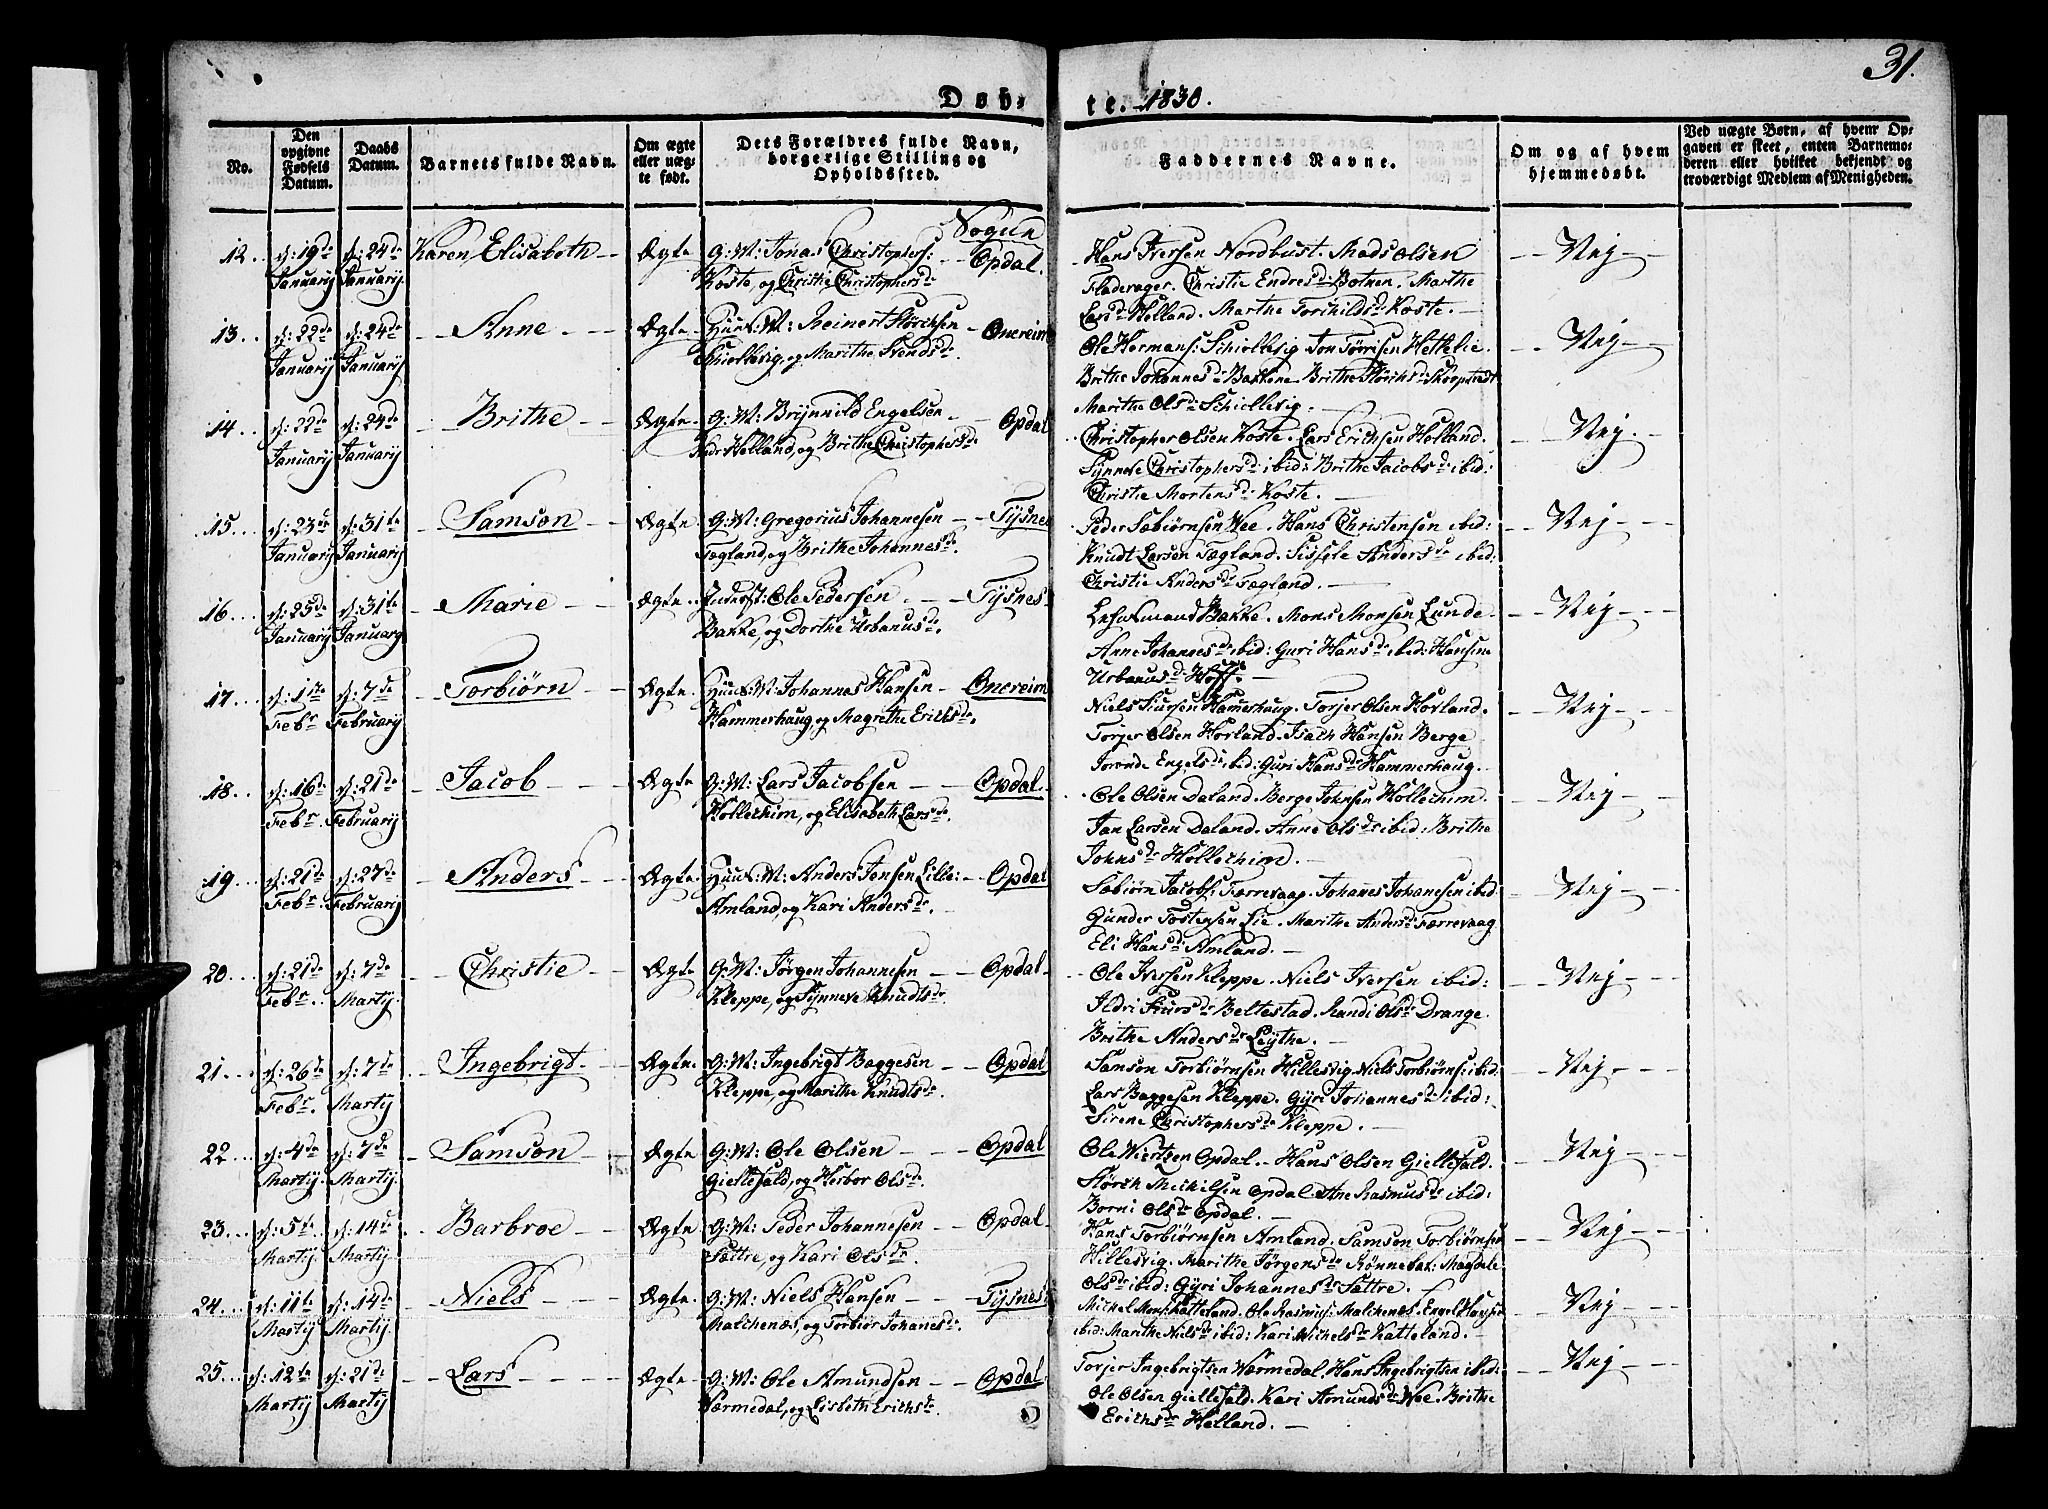 31.
Døb-
te. 1830.
No.
Den opgivne Fødsels Datum.
Daabs Datum.
Barnets fulde Navn.
Om ægte eller uægte født.
Dets Forældres fulde Navn, borgerlige Stilling og Opholdssted.
Faddernes Navne.
Om og af hvem hjemmedøbt.
Ved uægte Børn, af hvem Opgaven er skeet, enten Barnemoderen eller hvilket bekjendt og troværdigt Medlem af Menigheden.
Sogun
12. d: 19de Januarij d: 24de Januarij Karen Elisabeth Ægte G: M: Jonas Christophers: Opdal.
Koste, og Christie Christophersd:
Hans Iversen Nordbust. Mads Olsen Nej
Fladerager. Christie Endresd: Botnen. Marthe
Larsd: Helland. Marthe Torkildsd: Koste.
13. d: 22de Januarij d: 24de Januarij Anne Ægte Huus: M: Reinert Størchsen Onereim
Skiellevig, og Marithe Svendsd:
Ole Hermans: Schiellevig. Jon Tørrisen Hettelie. Nej
Brithe Johannesd: Bakkene. Brithe Størchsd:
Marithe Olsd: Schiellevig.
14. d: 22de Januarij d: 24de Januarij Brithe Ægte G: M: Brynnild Engelsen Opdal
Helland, og Brithe Christophersd:
Christopher Olsen Koste. Lars Erichsen Helland. Nej.
Synneve Christophersd: ibid: Brithe Jacobsd: ibid:
Christie Mortensd: Koste.
15. d: 23de Januarij d: 31te Januarij Samson Ægte G: M: Gregorius Johannesen Tysnes
Tægland, og Brithe Johannesd:
Peder Sæbiørnsen Wee. Hans Christensen ibid: Nej
Knudt Larsen Tægland. Sissele Andersd: ibid:
Christie Andersd: Tægland.
16. d: 25de Januarij d: 31te Januarij Marie Ægte Ole Pedersen Tysnes
Bakke, og Dorthe Urbanusd:
Bakke. Mons Monsen Lunde Nej
Anne Johannesd: ibid: Guri Hansd: ibid:
Urbanusd: Hoff.
17. d: 1ste Febr. d: 7de Februarij Torbiørn Ægte Huus: M: Johannes Hansen Onereim
Hammerhaug, og Magrethe Erichsd:
Niels Siursen Hamerhaug. Torjer Olsen Hovland. Nej
Torjer Olsen Hovland. Isach Hansen Berge
Engelsd: ibid: Guri Hansd: Hammerhaug.
18. d: 16de Febr. d: 21de Februarij Jacob Ægte G: M: Lars Jacobsen Opdal.
Hollechim, og Elisabeth Larsd:
Ole Olsen Daland. Berge Johnsen Hollechim. Nej
Jan Larsen Daland. Anne Olsd: ibid: Brithe
Johnsd: Hollechim.
19. d: 21de Febr. d: 27de Februarij Anders Ægte Huus: M: Anders Jensen Lille- Opdal
Amland, og Kari Andersd:
Sæbiørn Jacobs: Færrevaag. Johanes Johanesen ibid Nej
Gunder Tostensen Lie. Marithe Andersd: Færrevaag
Eli Hansd: Amland.
20. d: 21de Febr. d: 7de Martij Christie Ægte G: M: Jørgen Johannesen Opdal
Kleppe, og Synneve Knudtsd:
Ole Iversen Kleppe. Niels Iversen ibid: Nej
Ildri Siursd: Beltestad. Randi Olsd: Drange.
Brithe Andersd: Leythe.
21. d: 26de Febr. d: 7de Martij Ingebrigt Ægte G: M: Ingebrigt Baggesen Opdal
Kleppe, og Marithe Knudtsd:
Samson Torbiørnsen Hillesvig. Niels Torbiørns: ibid: Nej
Lars Baggesen Kleppe. Gyri Johannesd: ibid:
Sirene Christophersd: Kleppe.
22. d: 4de Martij d: 7de Martij Samson Ægte G: M: Ole Olsen Opdal
Giellefald, og Herbor Olsd:
Ole Wiertsen Opdal. Hans Olsen Giellefald. Nej
Størch Michilsen Opdal. Ane Rasmusd: ibid:
Borni Olsd: Opdal.
23. d: 5te Martij d: 14de Martij Barbroe Ægte G: M: Peder Johannesen Opdal
Sættre, og Kari Olsd:
Hans Torbiørnsen Amland. Samson Torbiørnsen Nej
Hillesvig. Marithe Jørgensd: Magdele
Olsd: ibid: Gyri Johannesd: Sattre.
24. d: 11te Martij d: 14de Martij Niels Ægte G: M: Niels Hansen Tysnes
Malchenæs, og Torbior Johanesd:
Michel Katteland. Ole Rasmus: Malchenæs. Nej
ibid: Marithe Nielsd: ibid: Kari Michelsd: Katteland.
25. d: 12te Martij d: 21de Martij Lars Ægte G: M: Ole Amundsen Opdal
Wærmedal, og Lisbeth Erichsd:
Torjer Ingebrigtsen Wærmedal. Hans Ingebrigtsen ibid: Nej
Ole Olsen Giellefald. Kari Amundsd: Wee. Brithe
Erichsd: Helland.